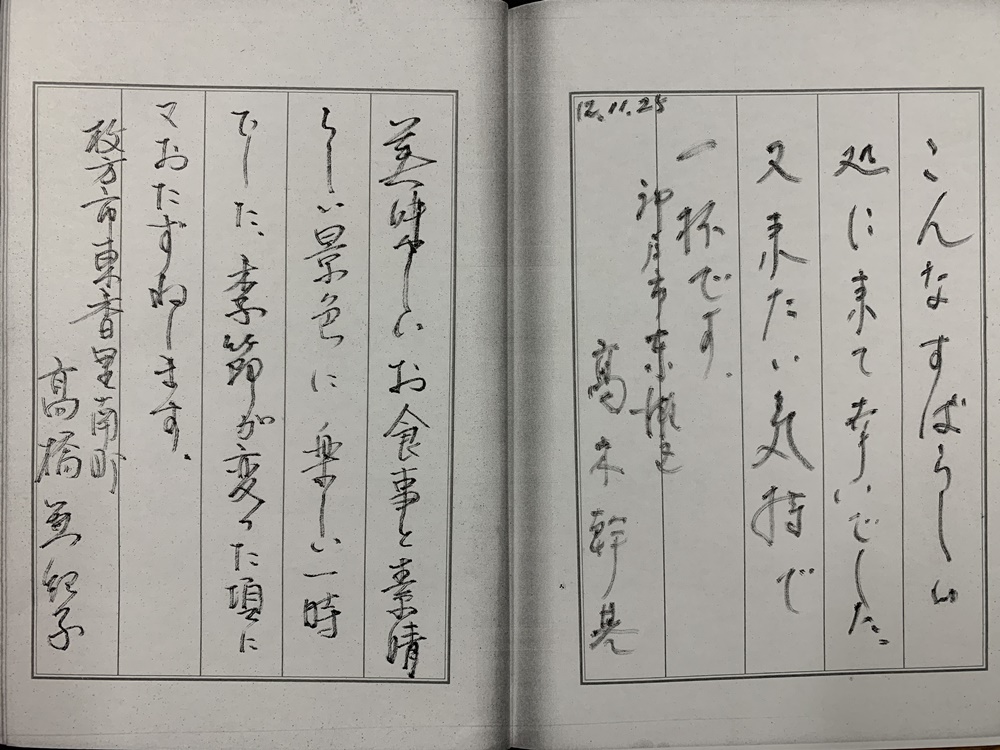 こんなすばらしい
処に来て幸いでした。
又来たい気持で
一杯です。
12.11.25
神戸市東灘区
高木幹晃
美味しいお食事と素晴
らしい景色に楽しい一時
でした、季節が変った頃に
又おたずねします。
枚方市東香里南町
高橋美紀子